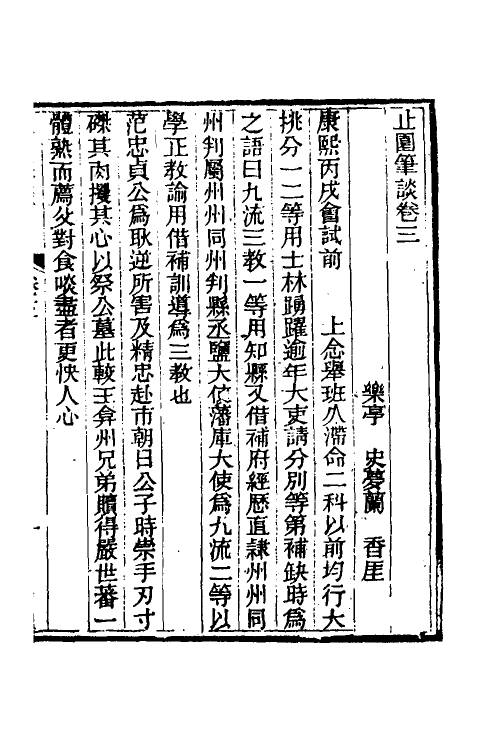 止園筆談卷三
樂亭 史夢蘭 香厓
康熙丙戌會試前 上念舉班久滯命二科以前均行大
挑分一二等用士林踴躍逾年大吏請分別等第補缺時爲
之語曰九流三教一等用知縣又借補府經歷直隸州州同
州判屬州州同州判縣丞鹽大使藩庫大使爲九流二等以
學正教諭用借補訓導爲三教也
范忠貞公爲耿逆所害及精忠赴市朝日公子時崇手刃寸
磔其肉攫其心以祭公墓此較王弇州兄弟贖得嚴世蕃一
體熟而薦父對食啖盡者更快人心